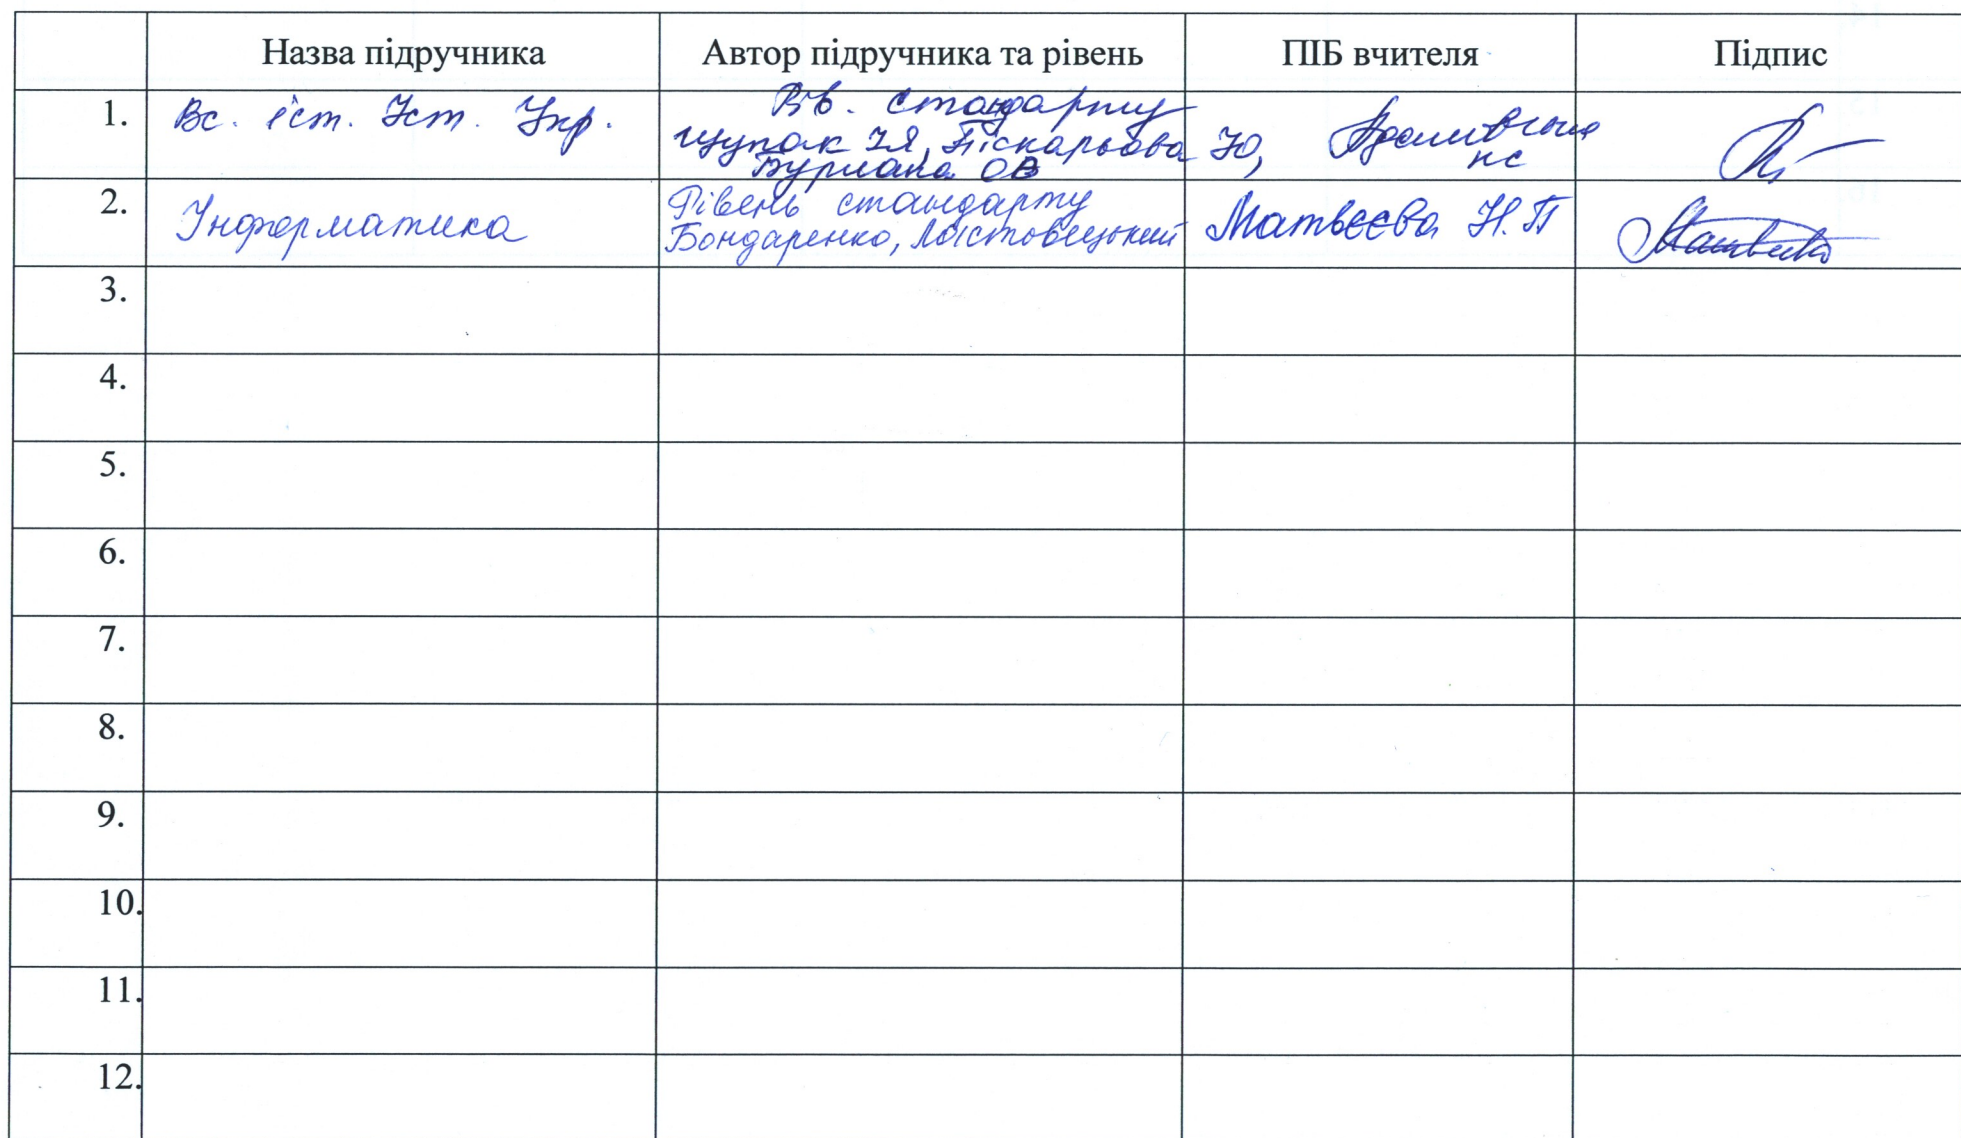 Назва підручника Автор підручника та рівень ПІБ вчителя Підпис
1. Вс. іст. Іст. Укр. Рів. стандарту
Щупак І Я, Піскарьова Ю,
Бурлака ОВ
2. Інформатика Рівень стандарту
Бондаренко, Ластовецький Матвєєва Н. П
3.
4.
5.
6.
7.
8.
9.
10.
11.
12.